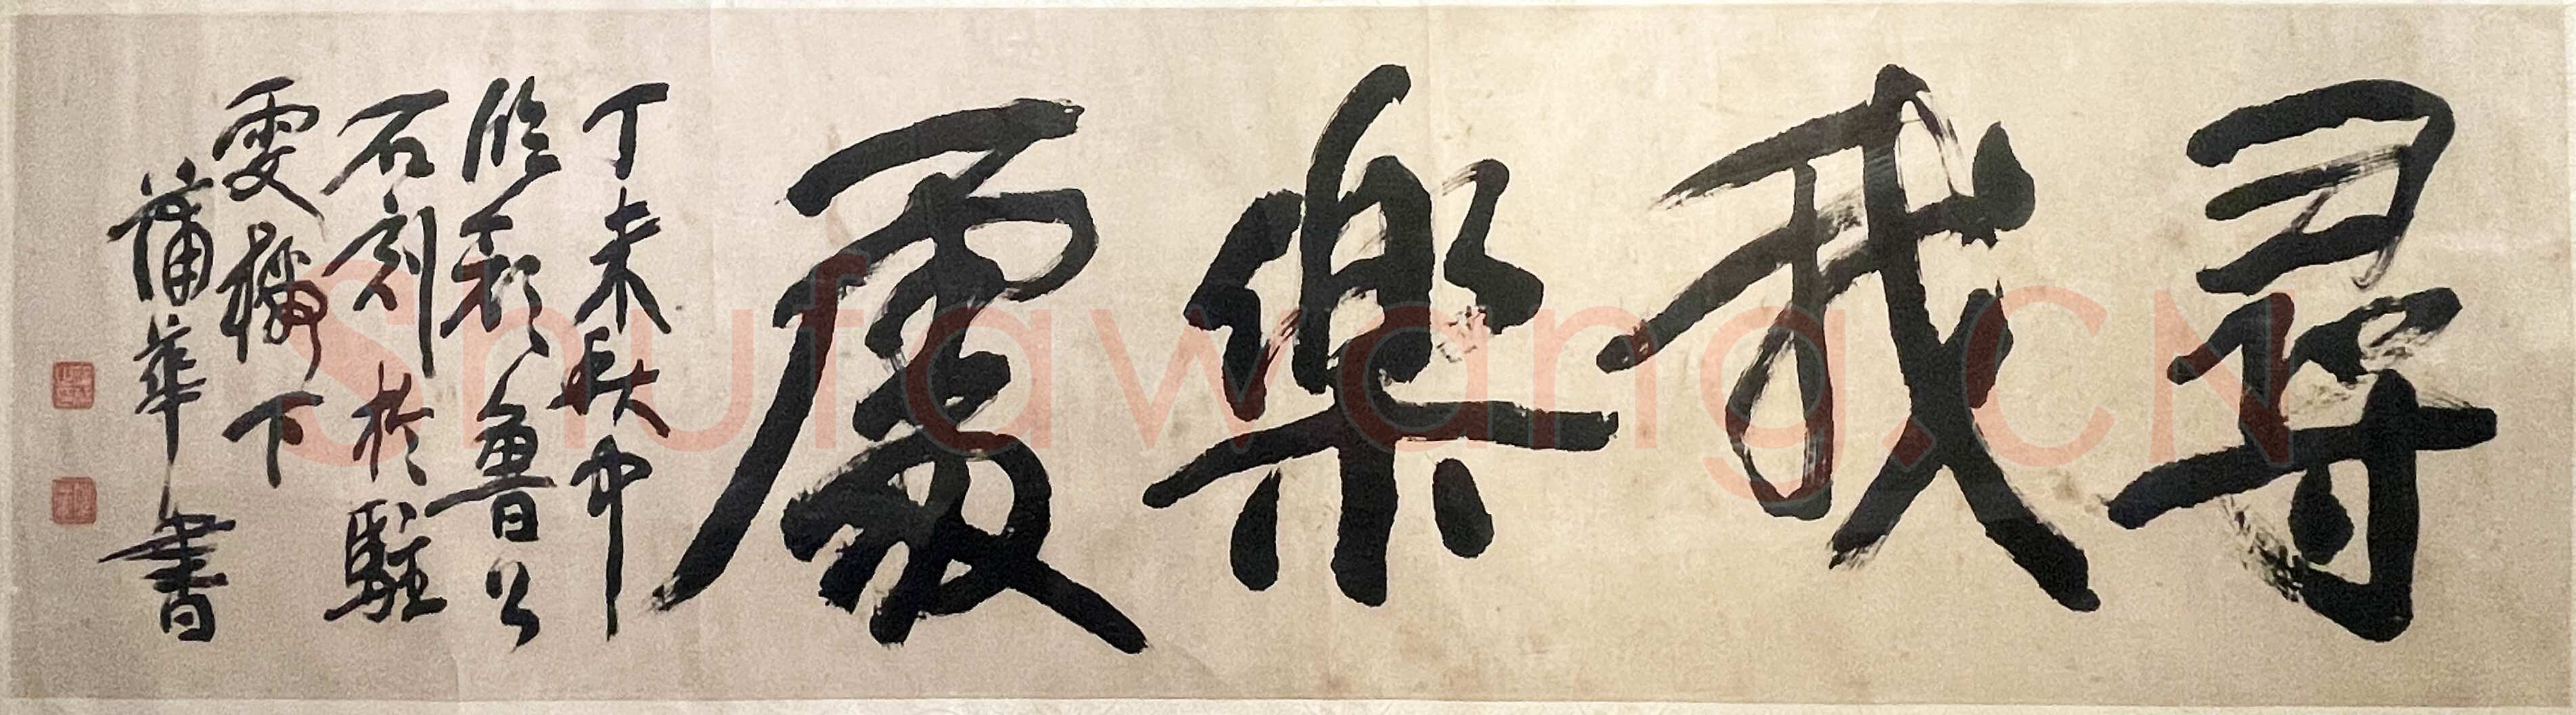 尋我樂處
丁未秋中
臨顏魯公
石刻於駐
雲樓下
蒲華書
Shufawang.CN